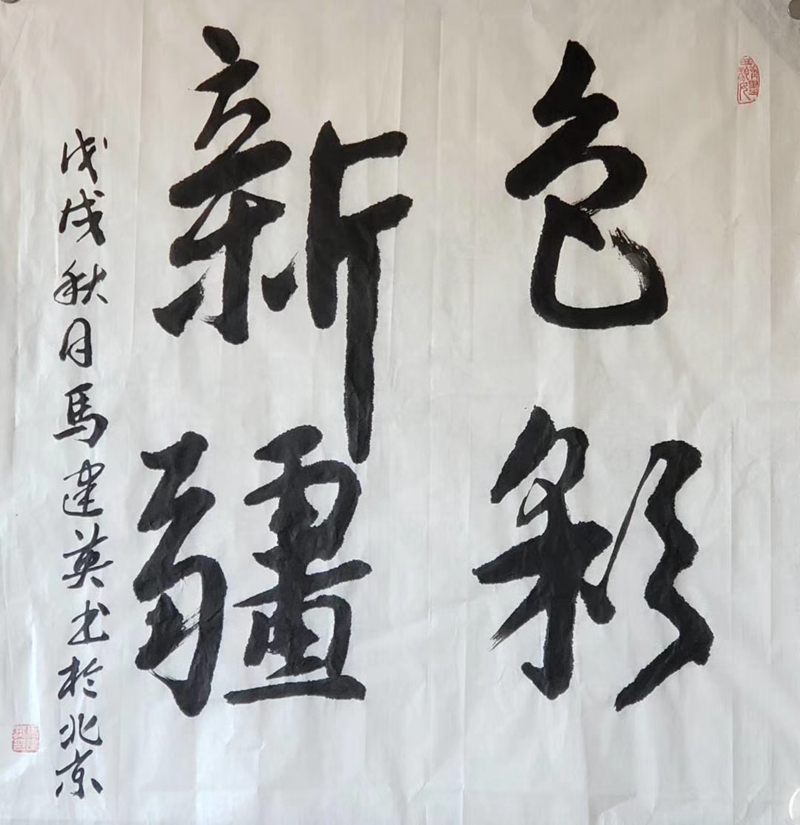 色彩
新疆
戊戌秋月馬建英书於北京